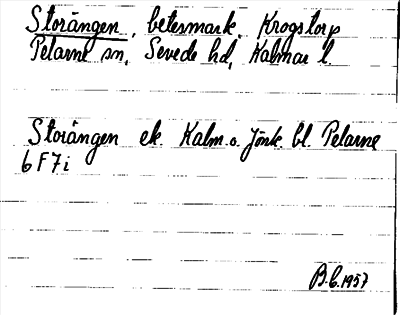 Storängen, betesmark, Krogstorp
Pelarne sn, Sevede hd, Kalmar l.
Storängen ek. Kalm. o. Jönk. bl. Pelarne
6 F 7 i
B.G. 1957